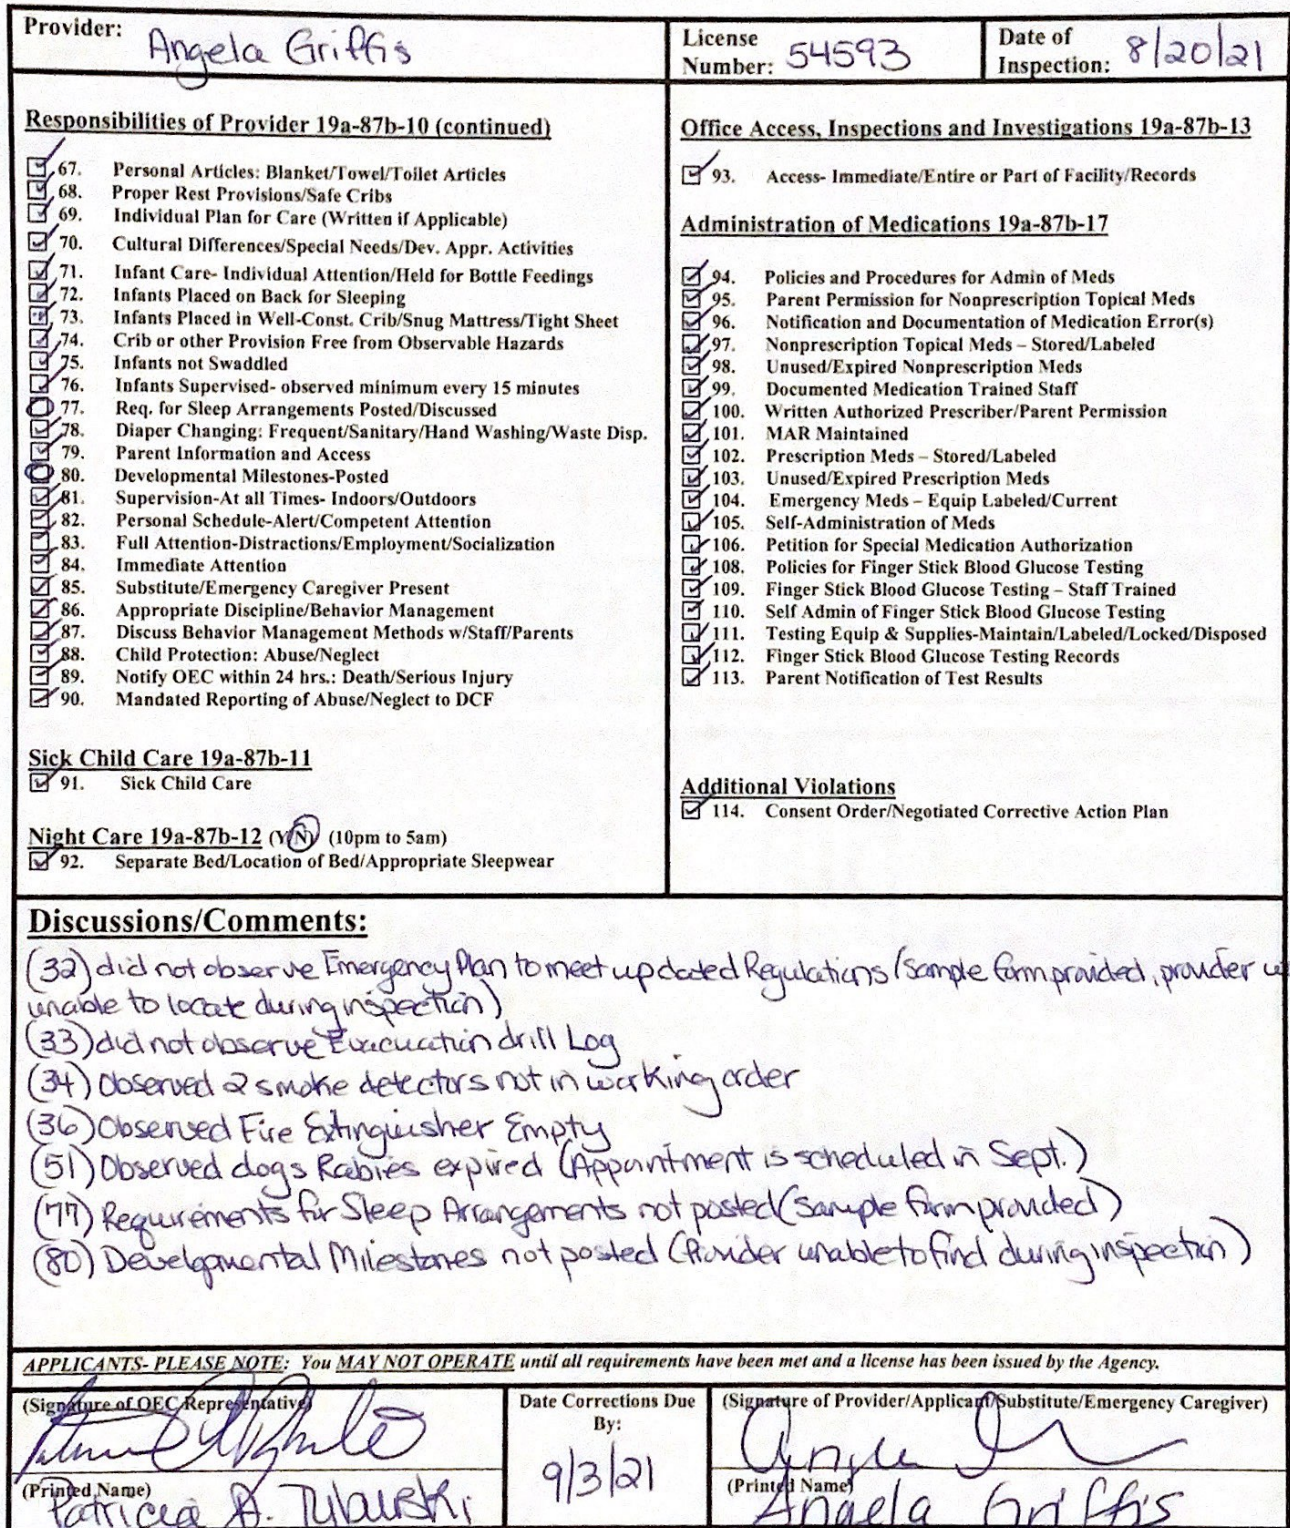 Provider: Angela Griffis
License Number: 54593
Date of Inspection: 8/20/21
Responsibilities of Provider 19a-87b-10 (continued)
67. Personal Articles: Blanket/Towel/Toilet Articles
68. Proper Rest Provisions/Safe Cribs
69. Individual Plan for Care (Written if Applicable)
70. Cultural Differences/Special Needs/Dev. Appr. Activities
71. Infant Care- Individual Attention/Held for Bottle Feedings
72. Infants Placed on Back for Sleeping
73. Infants Placed in Well-Const. Crib/Snug Mattress/Tight Sheet
74. Crib or other Provision Free from Observable Hazards
75. Infants not Swaddled
76. Infants Supervised- observed minimum every 15 minutes
77. Req. for Sleep Arrangements Posted/Discussed
78. Diaper Changing: Frequent/Sanitary/Hand Washing/Waste Disp.
79. Parent Information and Access
80. Developmental Milestones-Posted
81. Supervision-At all Times- Indoors/Outdoors
82. Personal Schedule-Alert/Competent Attention
83. Full Attention-Distractions/Employment/Socialization
84. Immediate Attention
85. Substitute/Emergency Caregiver Present
86. Appropriate Discipline/Behavior Management
87. Discuss Behavior Management Methods w/Staff/Parents
88. Child Protection: Abuse/Neglect
89. Notify OEC within 24 hrs.: Death/Serious Injury
90. Mandated Reporting of Abuse/Neglect to DCF
Sick Child Care 19a-87b-11
91. Sick Child Care
Night Care 19a-87b-12 (Y/N) (10pm to 5am)
92. Separate Bed/Location of Bed/Appropriate Sleepwear
Office Access, Inspections and Investigations 19a-87b-13
93. Access- Immediate/Entire or Part of Facility/Records
Administration of Medications 19a-87b-17
94. Policies and Procedures for Admin of Meds
95. Parent Permission for Nonprescription Topical Meds
96. Notification and Documentation of Medication Error(s)
97. Nonprescription Topical Meds – Stored/Labeled
98. Unused/Expired Nonprescription Meds
99. Documented Medication Trained Staff
100. Written Authorized Prescriber/Parent Permission
101. MAR Maintained
102. Prescription Meds – Stored/Labeled
103. Unused/Expired Prescription Meds
104. Emergency Meds – Equip Labeled/Current
105. Self-Administration of Meds
106. Petition for Special Medication Authorization
108. Policies for Finger Stick Blood Glucose Testing
109. Finger Stick Blood Glucose Testing – Staff Trained
110. Self Admin of Finger Stick Blood Glucose Testing
111. Testing Equip & Supplies-Maintain/Labeled/Locked/Disposed
112. Finger Stick Blood Glucose Testing Records
113. Parent Notification of Test Results
Additional Violations
114. Consent Order/Negotiated Corrective Action Plan
Discussions/Comments:
(32) did not observe Emergency Plan to meet updated Regulations (sample form provided, provider
unable to locate during inspection)
(33) did not observe Evacuation drill Log
(34) Observed 2 smoke detectors not in working order
(36) Observed Fire Extinguisher Empty
(51) Observed dogs Rabies expired (Appointment is scheduled in Sept.)
(77) Requirements for Sleep Arrangements not posted (Sample form provided)
(80) Developmental Milestones not posted (Provider unable to find during inspection)
APPLICANTS- PLEASE NOTE: You MAY NOT OPERATE until all requirements have been met and a license has been issued by the Agency.
(Signature of OEC Representative)
(Printed Name)
Patricia A.
Date Corrections Due
By:
9/3/21
(Signature of Provider/Applicant/Substitute/Emergency Caregiver)
(Printed Name)
Angela Griffis